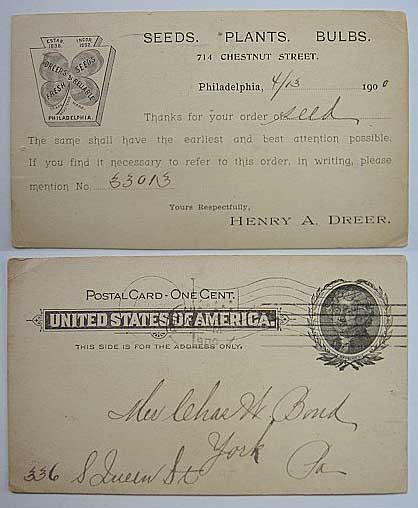 ESTAB. 1838. INCOR. 1892.
DREER'S RELIABLE
FRESH SEEDS
PHILADELPHIA.
SEEDS. PLANTS. BULBS.
714 CHESTNUT STREET.
Philadelphia, 4/13 1900
Thanks for your order of seed
The same shall have the earliest and best attention possible.
If you find it necessary to refer to this order, in writing, please
mention No. 33013
Yours Respectfully,
HENRY A. DREER.
POSTAL CARD - ONE CENT.
UNITED STATES OF AMERICA.
THIS SIDE IS FOR THE ADDRESS ONLY.
1900
Chas W. Bond
York
336 S Queen St Pa